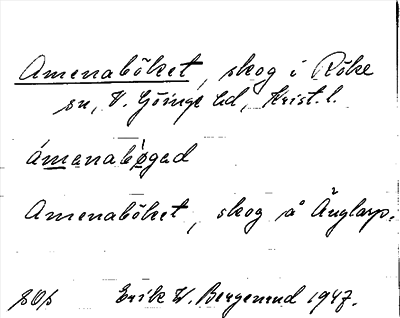 Amenaböket, skog i Röke
sn, V. Göinge hd, Krist. l.
ámenabøged
Amenaböket, skog å Änglarp.
Erik W. Bergenrud 1947.